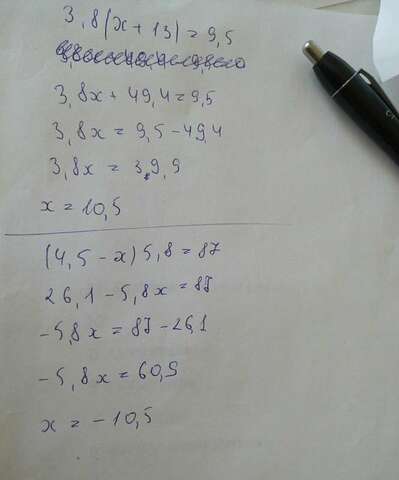 3,8(x+13)=9,5
3,8x+49,4=9,5
3,8x=9,5-49,4
3,8x=39,9
x=10,5
(4,5-x)5,8=87
26,1-5,8x=87
-5,8x=87-26,1
-5,8x=60,9
x=-10,5